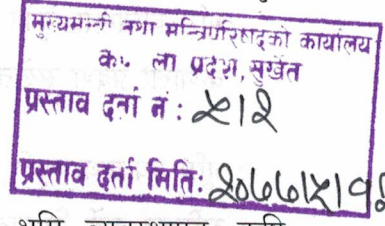 मुख्यमन्त्री तथा मन्त्रिपरिषद्को कार्यालय
प्रदेश, सुर्खेत
प्रस्ताव दर्ता नं : ५१२
प्रस्ताव दर्ता मिति: २०७७।५।१